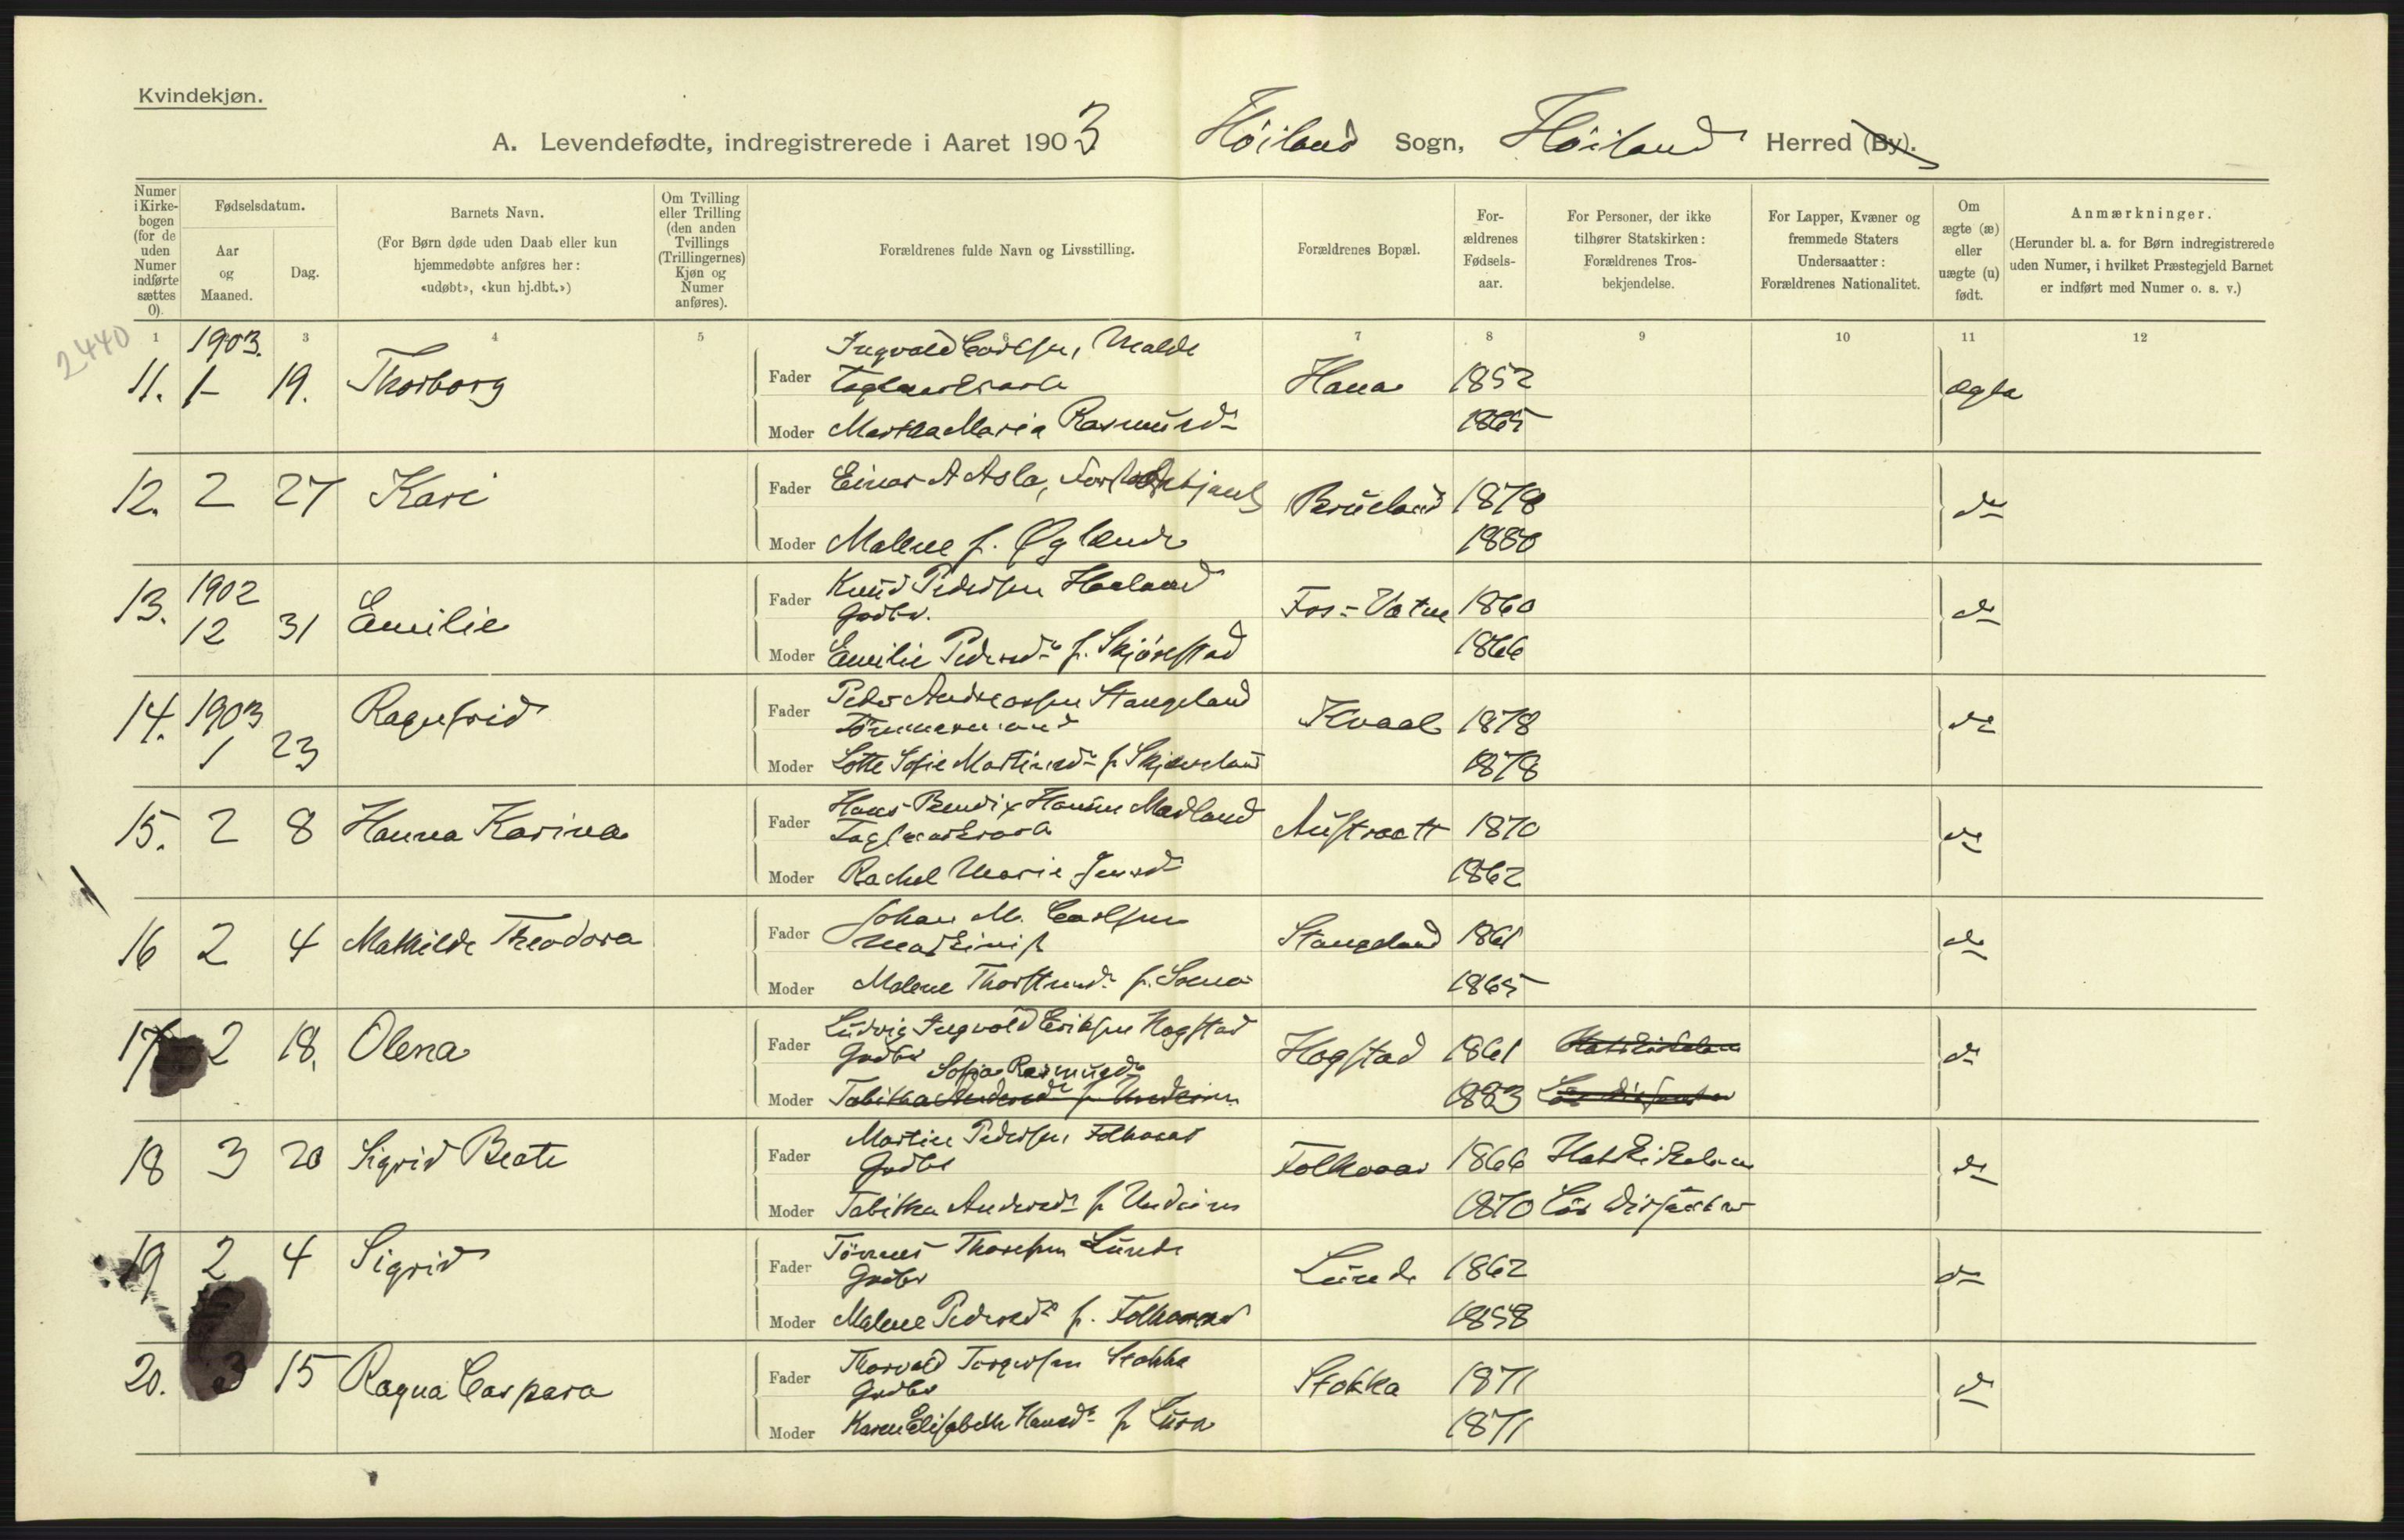 Kvindekjøn.
A. Levendefødte, indregistrerede i Aaret 1903 Höiland Sogn, Höiland Herred (By).
Numer i Kirke-bogen (for de uden Numer indførte sættes 0).
Fødselsdatum.
Aar og Maaned.
Dag.
Barnets Navn.
(For Børn døde uden Daab eller kun hjemmedøbte anføres her: «udøbt», «kun hj.dbt.»)
Om Tvilling eller Trilling (den anden Tvillings (Trillingernes) Kjøn og Numer anføres).
Forældrenes fulde Navn og Livsstilling.
Forældrenes Bopæl.
For-ældrenes Fødsels-aar.
For Personer, der ikke tilhører Statskirken: Forældrenes Tros-bekjendelse.
For Lapper, Kvæner og fremmede Staters Undersaatter: Forældrenes Nationalitet.
Om ægte (æ) eller uægte (u) født.
Anmærkninger.
(Herunder bl. a. for Børn indregistrerede uden Numer, i hvilket Præstegjeld Barnet er indført med Numer o. s. v.)
2440
1 3 4 5 6 7 8 9 10 11 12
1903.
11. 1 19. Thorborg Fader Ingvald Carlsen, Malde Hana 1852 ægte
Moder Martha Maria Rasmusd. 1865
12. 2 27 Kari Fader Einar A Asla, Brueland 1878 do
Moder Malene f. Øglænd 1880
13. 1902 12 31 Emilie Fader Knud Pedersen Haaland Fos-Vatne 1860 do
Gadbr.
Moder Emilie Pedersd. f. Skjörestad 1866
14. 1903 1 23 Ragnfrid Fader Peder Andreassen Stangeland Kvaal 1878 do
Tömmermand
Moder Lotte Sofie Martinsd. f. Skjæveland 1878
15. 2 8 Hanna Karina Fader Hans Bendix Hansen Madland Austraatt 1870 do
Moder Rachel Marie Jensd. 1862
16 2 4 Mathilde Theodora Fader Johan M. Carlsen Stangeland 1861 do
Maskinist
Moder Malene Thorstensd. f. Soma 1865
17 2 18. Olena Fader Ludvig Ingvald Eriksen Hogstad Hogstad 1861 do
Gadbr Sofia Rasmusd.
Moder Tabitha Andersd. f. Undeim 1883
18 3 20 Sigrid Beate Fader Martin Pedersen Folkvord Folkvord 1866 Statskirken do
Gadbr
Moder Tabitha Andersd. f. Undeim 1870 Dissenter
19 2 4 Sigrid Fader Tönnes Thoresen Lunde Lunde 1862 do
Gadbr
Moder Malene Pedersd. f. Folkvord 1858
20. 3 15 Ragna Caspara Fader Thorvald Torgersen Stokka Stokka 1871 do
Gadbr
Moder Karen Elisabeth Hansd. f. Lura 1871